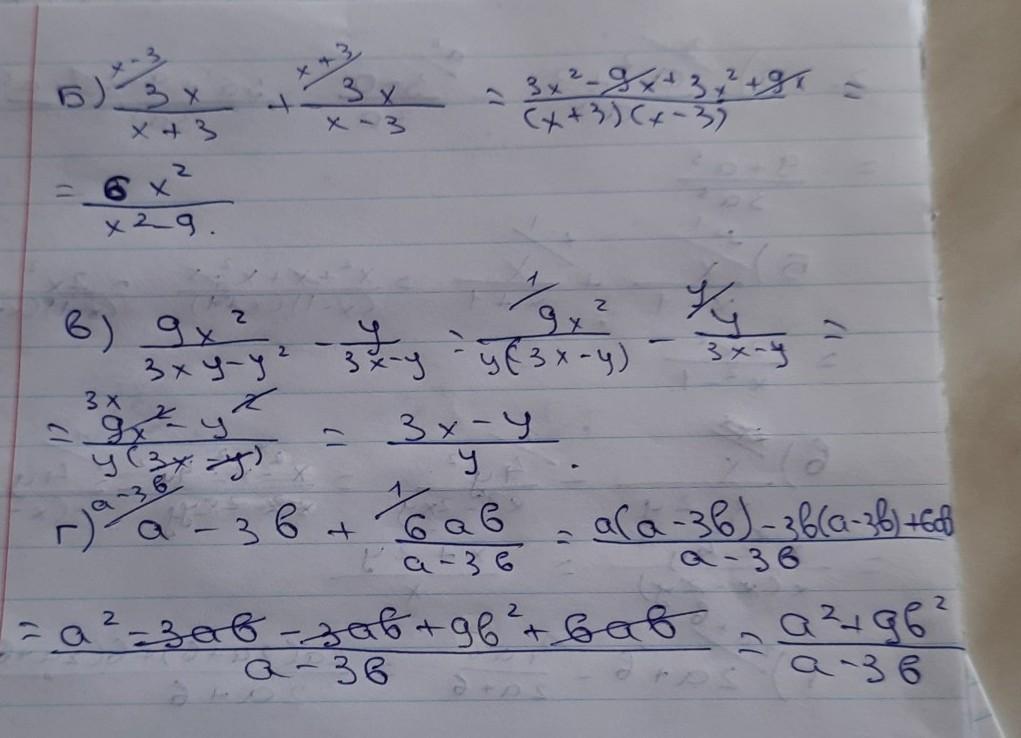 Б) x-3/ 3x/(x+3) + x+3/ 3x/(x-3) = (3x² - 9x + 3x² + 9x)/((x+3)(x-3)) =
= 6x²/(x²-9).
в) 9x²/(3xy-y²) - y/(3x-y) = 1/ 9x²/(y(3x-y)) - y/ y/(3x-y) =
= 3x (9x² - y²)/(y(3x-y)) = (3x-y)/y.
г) a-3в/ a - 3в + 1/ 6aв/(a-3в) = (a(a-3в)-3в(a-3в)+6aв)/(a-3в)
= (a² - 3aв - 3aв + 9в² + 6aв)/(a-3в) = (a²+9в²)/(a-3в)